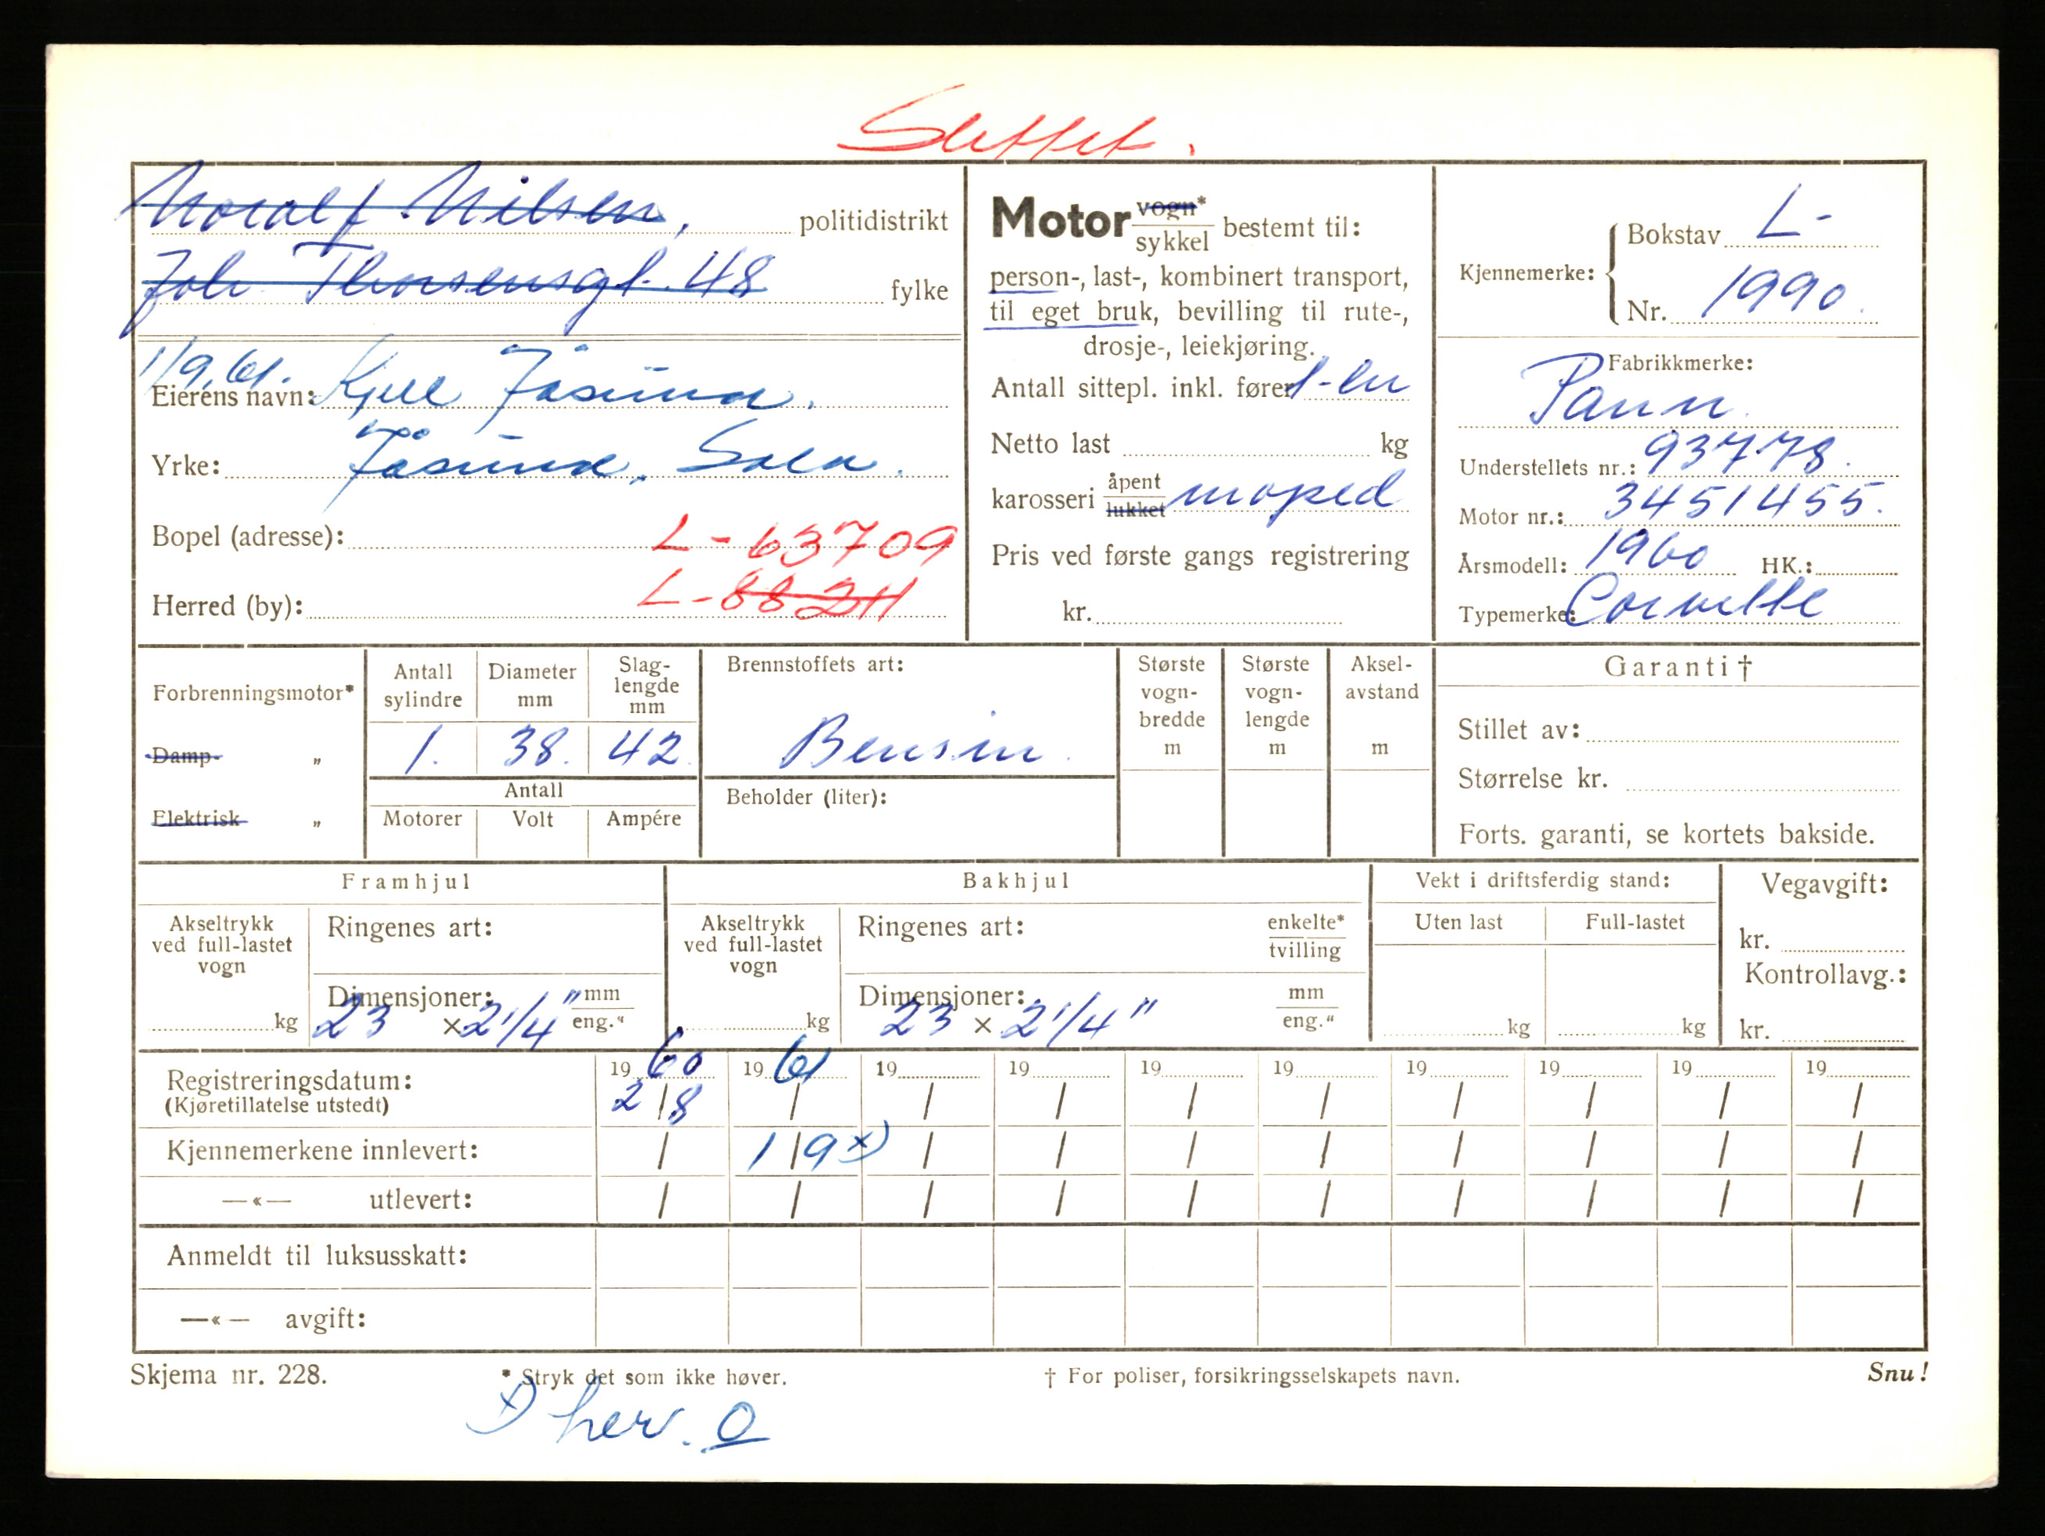 Slettet.
Noralf Nilsen, politidistrikt
Joh Thorsensgt. 48 fylke
1/9.61.
Eierens navn: Kjell Jåsund.
Yrke: Jåsund, Sola.
Bopel (adresse): L-63709
Herred (by): L-88211
Motor vogn* / sykkel bestemt til:
person-, last-, kombinert transport,
til eget bruk, bevilling til rute-,
drosje-, leiekjøring.
Antall sittepl. inkl. fører 1-en
Netto last kg
karosseri åpent / lukket moped
Pris ved første gangs registrering
kr.
Kjennemerke: Bokstav L-
Nr. 1990.
Fabrikkmerke:
Pann
Understellets nr.: 93778.
Motor nr.: 3451455.
Årsmodell: 1960 HK.:
Typemerke: Corvette
Forbrenningsmotor*
Damp- „
Elektrisk „
Antall sylindre
Diameter mm
Slag-lengde mm
1. 38. 42.
Antall
Motorer Volt Ampére
Brennstoffets art:
Bensin.
Beholder (liter):
Største vogn-bredde m
Største vogn-lengde m
Aksel-avstand m
Garanti †
Stillet av:
Størrelse kr.
Forts. garanti, se kortets bakside.
Framhjul
Akseltrykk ved full-lastet vogn
kg
Ringenes art:
Dimensjoner: mm / eng."
23 x 2 1/4"
Bakhjul
Akseltrykk ved full-lastet vogn
kg
Ringenes art: enkelte* / tvilling
Dimensjoner: mm / eng."
23 x 2 1/4"
Vekt i driftsferdig stand:
Uten last Full-lastet
kg kg
Vegavgift:
kr.
Kontrollavg.:
kr.
Registreringsdatum: 1960 1961 19 19 19 19 19 19 19 19
(Kjøretillatelse utstedt) 2/8 / / / / / / / / /
Kjennemerkene innlevert: / 1/9 x) / / / / / / / /
—«— utlevert: / / / / / / / / / /
Anmeldt til luksusskatt:
—«— avgift:
Skjema nr. 228. * Stryk det som ikke høver. † For poliser, forsikringsselskapets navn. Snu!
x) her. O